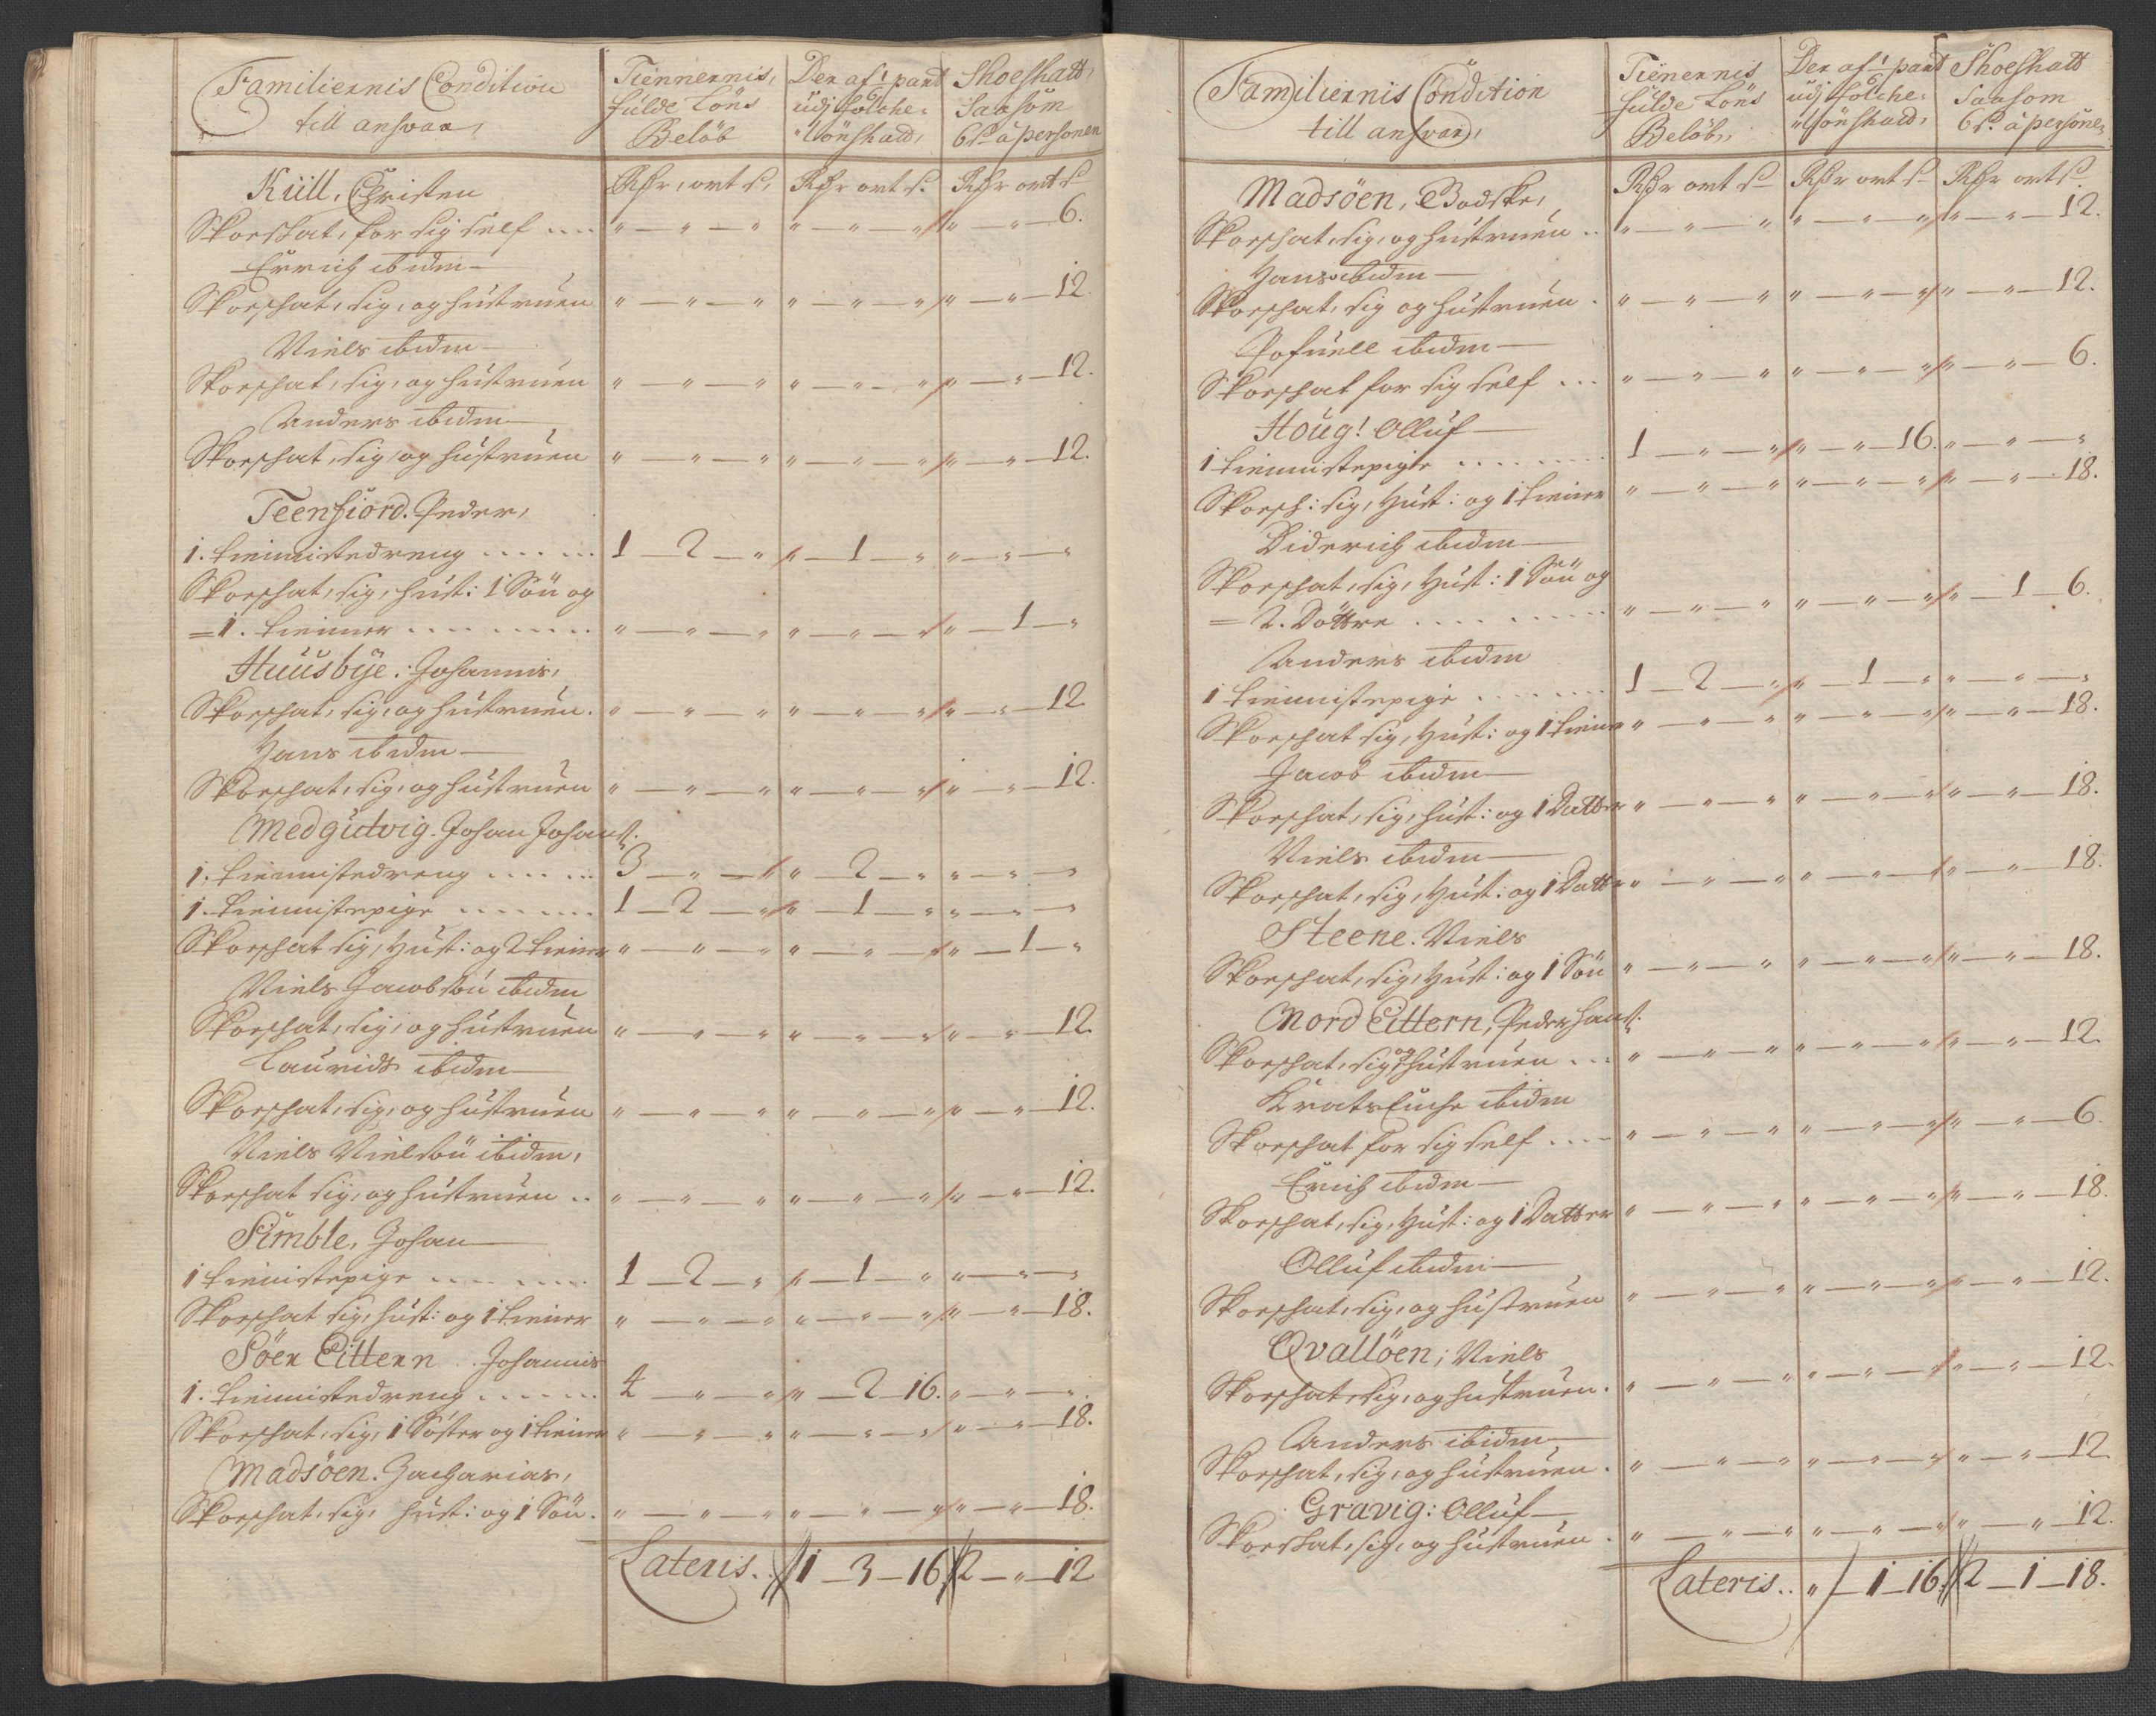 Familiernis Condition
till ansvar,
Tiennernis,
fulde Löns
Belöb
Der af 1/6 part
udj folche-
Lönshald,
Skoeskatt,
Saasom
6 s. a personen
Rdr, ort s.
Rdr ort s.
Rdr ort s
Küll, Christen
Skoeskat, for sig self .... " — " — " " — " — " " — " — 6.
Errich ibidm
Skoeskat, sig, og hustruen " — " — " " — " — " " — " — 12.
Niels ibidm
Skoeskat, sig, og hustruen " — " — " " — " — " " — " — 12.
Anders ibidm
Skoeskat, sig, og hustruen " — " — " " — " — " " — " — 12.
Teenfiord. Peder,
1. tiennistedreng ...... 1 — 2 — " " — 1 — " " — " — "
Skoeskat, sig, hust: 1 Sön og
= 1. tienner ........ " — " — " " — " — " " — 1 — "
Huusbÿe: Johannis,
Skoeskat, sig, og hustruen. " — " — " " — " — " " — " — 12
Hans ibidm
Skoeskat, sig, og hustruen " — " — " " — " — " " — " — 12.
Medgudvig. Johan Johans:
1. tiennistedreng ...... 3 — " — " " — 2 — " " — " — "
1. tiennistepige ....... 1 — 2 — " " — 1 — " " — " — "
Skoeskat sig, Hust: og 2 tiener " — " — " " — " — " " — 1 — "
Niels Jacobsön ibidm
Skoeskat, sig, og hustruen " — " — " " — " — " " — " — 12.
Laurids ibidm
Skoeskat, sig, og hustruen " — " — " " — " — " " — " — 12.
Niels Nielsön ibidm,
Skoeskat sig, og hustruen .. " — " — " " — " — " " — " — 12.
Simble, Johan
1 tiennistepige ........ 1 — 2 — " " — 1 — " " — " — "
Skoeskat sig, hust: og 1 tiener " — " — " " — " — " " — " — 18.
Söer Eittern. Johannis
1. tiennistedreng ...... 4 — " — " " — 2 — 16. " — " — "
Skoeskat, sig, 1 Söster og 1 tiener " — " — " " — " — " " — " — 18.
Madsöen. Zacharias,
Skoeskat, sig, hust: og 1 Sön. " — " — " " — " — " " — " — 18.
Lateris.. 1 — 3 — 16 2 — " — 12
Familiernis Condition
till ansvar,
Tienernis
fulde Löns
Belöb,,
Der af 1/6 part
udj folche-
Lönshald,
Skoeskatt
Saasom
6 s. a personen
Rdr ort s
Rdr ort s
Rdr ort s.
Madsöen, Badske,
Skoeskat, sig, og hustruen .. " — " — " " — " — " " — " — 12.
Hans ibidm
Skoeskat, sig og hustruen . " — " — " " — " — " " — " — 12.
ibidm
Skoeskat for sig self ... " — " — " " — " — " " — " — 6.
Houg! Olluf
1 tiennistepige ........ 1 — " — " " — " — 16. " — " — "
Skoesk: sig, Hust: og 1 tiener " — " — " " — " — " " — " — 18.
Diderich ibidm
Skoeskat, sig, Hust: 1 Sön og
= 2. Döttre ........ " — " — " " — " — " " — 1 — 6.
Anders ibidm
1 tiennistepige ....... 1 — 2 — " " — 1 — " " — " — "
Skoeskat sig, Hust: og 1 tiener " — " — " " — " — " " — " — 18.
Jacob ibidm
Skoeskat, sig, hust: og 1 Datter " — " — " " — " — " " — " — 18.
Niels ibidm
Skoeskat, sig, Hust: og 1 Datter " — " — " " — " — " " — " — 18.
Steene. Niels
Skoeskat, sig, Hust: og 1 Sön " — " — " " — " — " " — " — 18.
Nord Eittern, Peder Hans:
Skoeskat, sig og hustruen ... " — " — " " — " — " " — " — 12.
ibidm
Skoeskat for sig self .... " — " — " " — " — " " — " — 6
Erich ibidm
Skoeskat, sig, Hust: og 1 Datter " — " — " " — " — " " — " — 18.
Olluf ibidm
Skoeskat, sig, og hustruen " — " — " " — " — " " — " — 12.
Qvallöen; Niels
Skoeskat, sig, og hustruen. " — " — " " — " — " " — " — 12.
Anders ibidm
Skoeskat, sig, og hustruen . " — " — " " — " — " " — " — 12.
Gravig: Olluf
Skoeskat, sig, og hustruen . " — " — " " — " — " " — " — 12.
Lateris.. " — 1 — 16. 2 — 1 — 18.